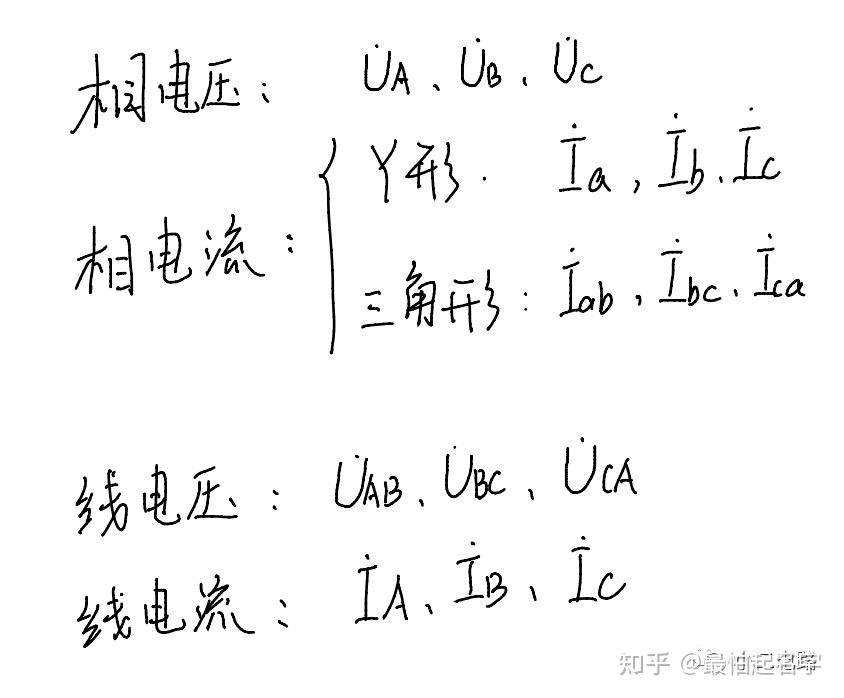 相电压: U̇A、U̇B、U̇C
Y形. İa,İb、İc
相电流:
三角形: İab,İbc、İca
线电压: U̇AB、U̇BC、U̇CA
线电流: İA、İB、İC
知乎 @最怕起名字